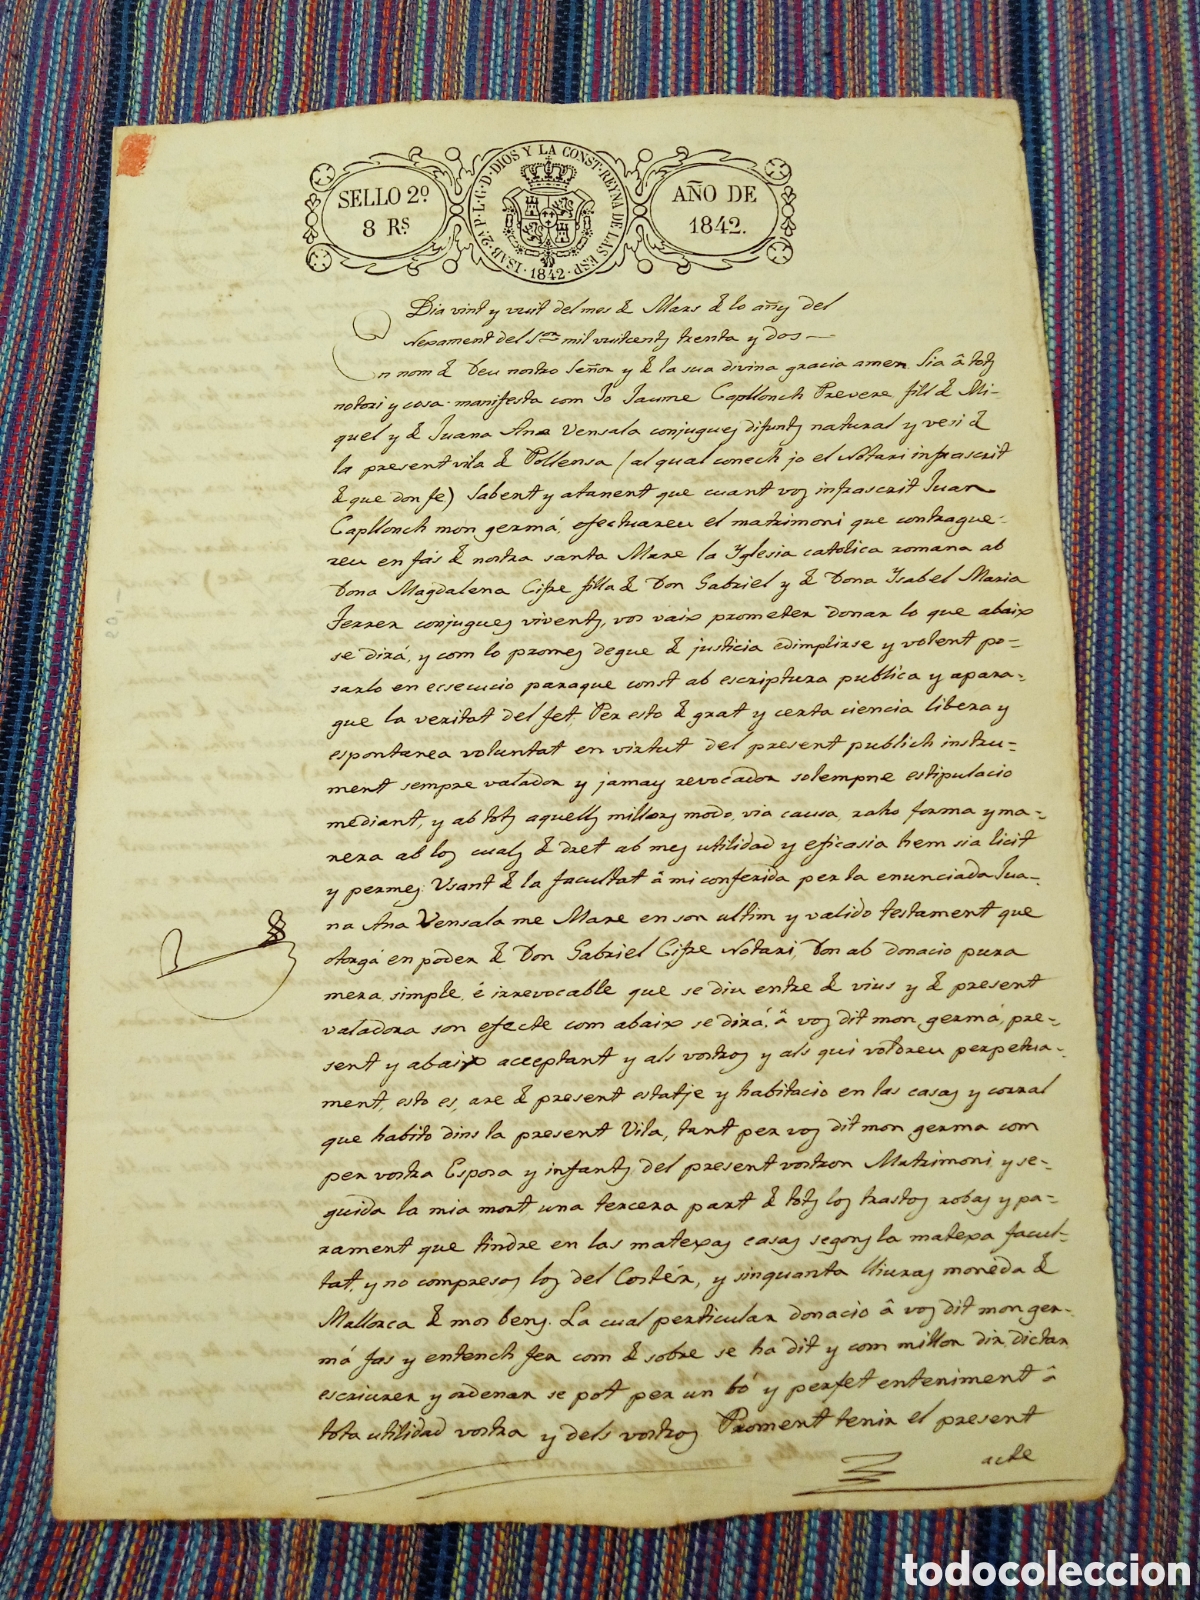 SELLO 2º
8 Rs
ISAB. 2ª P. L. G. D. DIOS Y LA CONST. REYNA DE LAS ESP.
1842
AÑO DE
1842.
Dia vint y vuit del mes de Mars de lo añy del
Nexament del Sor mil vuitcents trenta y dos
En nom de Deu nostro Señor y de la sua divina gracia amen Sia â tots
notori y cosa manifesta com Jo Jaume Capllonch Prevere fill de Mi-
quel y de Juana Ana Vensala conjugues difunts natural y vesi de
la present vila de Pollensa (al qual conech jo el Notari infrascrit
de que don fe) Sabent y atanent que cuant vos infrascrit Juan
Capllonch mon germá, efectuareu el matrimoni que contrague-
reu en fás de nostra santa Mare la Yglesia catolica romana ab
Dona Magdalena Cifre filla de Don Gabriel y de Dona Ysabel Maria
Ferrer conjugues vivents, vos vaix prometer donar lo que abaix
se dirá, y com lo promes degue de justicia edimplirse y volent po-
sarlo en ecsecucio paraque const ab escriptura publica y apara-
gue la veritat del fet. Per esto de grat y certa ciencia libera y
espontanea voluntat en virtut del present publich instru-
ment sempre valador y jamay revocador solempne estipulacio
mediant, y ab tots aquells millors modo, via causa, raho forma y ma-
nera ab los cuals de dret ab mes utilidad y eficasia hem sia licit
y permes: Usant de la facultat â mi conferida per la enunciada Jua-
na Ana Vensala me Mare en son ultim y valido testament que
otorgá en poder de Don Gabriel Cifre Notari, Don ab donacio pura
mera, simple, é irrevocable que se diu entre de vius y de present
valadora son efecte com abaix se dirá, â vos dit mon germá, pre-
sent y abaix acceptant y als vostros y als qui voldreu perpetua-
ment, esto es, are de present estatje y habitacio en las casas y corral
que habito dins la present Vila, tant per vos dit mon germa com
per vostra Esposa y infants del present vostron Matrimoni, y se-
guida la mia mort una tercera part de tots los trastos robas y pa-
rament que tindre en las matexas casas segons la matexa facul-
tat, y no compresos los del Costér, y sinquanta lliuras moneda de
Mallorca de mos bens. La cual perticular donacio â vos dit mon ger-
má fas y entench fer com de sobre se ha dit y com millor dir, dictar
escriurer y ordenar se pot per un bó y perfet enteniment â
tota utilidad vostra y dels vostros Proment tenir el present
acte
todocoleccion